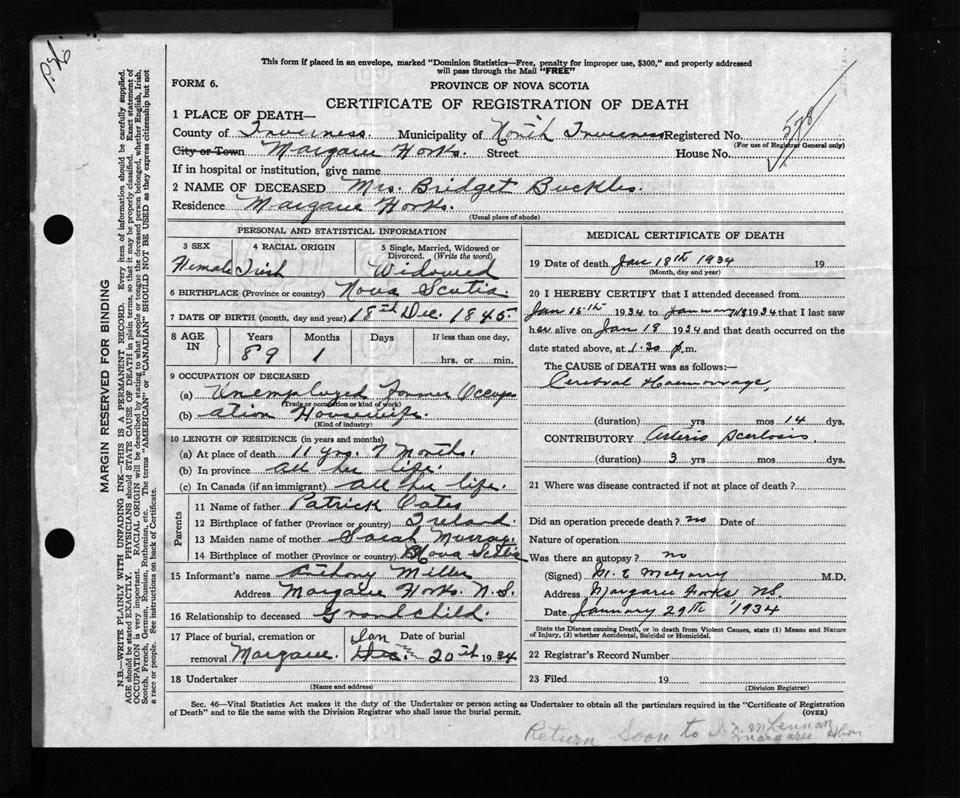 This form if placed in an envelope, marked "Dominion Statistics—Free, penalty for improper use, $300," and properly addressed
will pass through the Mail "FREE"
FORM 6.
PROVINCE OF NOVA SCOTIA
CERTIFICATE OF REGISTRATION OF DEATH
1 PLACE OF DEATH—
County of Inverness. Municipality of North Inverness Registered No. 578
(For use of Registrar General only)
City or Town Margaree Forks. Street House No.
If in hospital or institution, give name
2 NAME OF DECEASED Mrs. Bridget Buckles.
Residence Margaree Forks.
(Usual place of abode)
PERSONAL AND STATISTICAL INFORMATION
3 SEX 4 RACIAL ORIGIN 5 Single, Married, Widowed or
Divorced. (Write the word)
Female Irish Widowed
6 BIRTHPLACE (Province or country) Nova Scotia.
7 DATE OF BIRTH (month, day and year) 18th Dec. 1845.
8 AGE IN Years Months Days If less than one day,
89 1 hrs. or min.
9 OCCUPATION OF DECEASED
(a) Unemployed Former Occup
(Trade or occupation or kind of work)
(b) ation Housewife.
(Kind of industry)
10 LENGTH OF RESIDENCE (in years and months)
(a) At place of death 11 yrs. 7 months.
(b) In province all her life.
(c) In Canada (if an immigrant) all her life.
Parents
11 Name of father Patrick Oates
12 Birthplace of father (Province or country) Ireland.
13 Maiden name of mother Sarah Murray.
14 Birthplace of mother (Province or country) Nova Scotia
15 Informant's name Anthony Miller
Address Margaree Forks N.S.
16 Relationship to deceased Grandchild.
17 Place of burial, cremation or removal Margaree. Date of burial Jan Dec. 20th 1934
18 Undertaker
(Name and address)
MEDICAL CERTIFICATE OF DEATH
19 Date of death Jan 18th 1934 19
(Month, day and year)
20 I HEREBY CERTIFY that I attended deceased from
Jan 15th 1934 to January 18 1934 that I last saw
her alive on Jan 18 1934 and that death occurred on the
date stated above, at 1.30 p.m.
The CAUSE of DEATH was as follows:—
Cerebral Haemorrage,
(duration) yrs mos 14 dys.
CONTRIBUTORY Arterio Scerlosis.
(duration) 3 yrs mos dys.
21 Where was disease contracted if not at place of death?
Did an operation precede death? no Date of
Nature of operation
Was there an autopsy? no
(Signed) M. E McGarry M.D.
Address Margaree Forks NS.
Date January 29th 1934
State the Disease causing Death, or in death from Violent Causes, state (1) Means and Nature
of Injury, (2) whether Accidental, Suicidal or Homicidal.
22 Registrar's Record Number
23 Filed 19
(Division Registrar)
Sec. 46—Vital Statistics Act makes it the duty of the Undertaker or person acting as Undertaker to obtain all the particulars required in the "Certificate of Registration
of Death" and to file the same with the Division Registrar who shall issue the burial permit. (OVER)
Return Soon to McLennan
Margaree
MARGIN RESERVED FOR BINDING
N.B.—WRITE PLAINLY WITH UNFADING INK—THIS IS A PERMANENT RECORD. Every item of information should be carefully supplied.
AGE should be stated EXACTLY. PHYSICIANS should STATE CAUSE OF DEATH in plain terms, so that it may be properly classified. Exact statement of
OCCUPATION is very important. RACIAL ORIGIN will be described by stating to what people or tongue the deceased person belonged, whether English, Irish,
Scotch, French, German, Russian, Ruthenian, etc. The terms "AMERICAN" or "CANADIAN" SHOULD NOT BE USED as they express citizenship but not
a race or people. See instructions on back of Certificate.